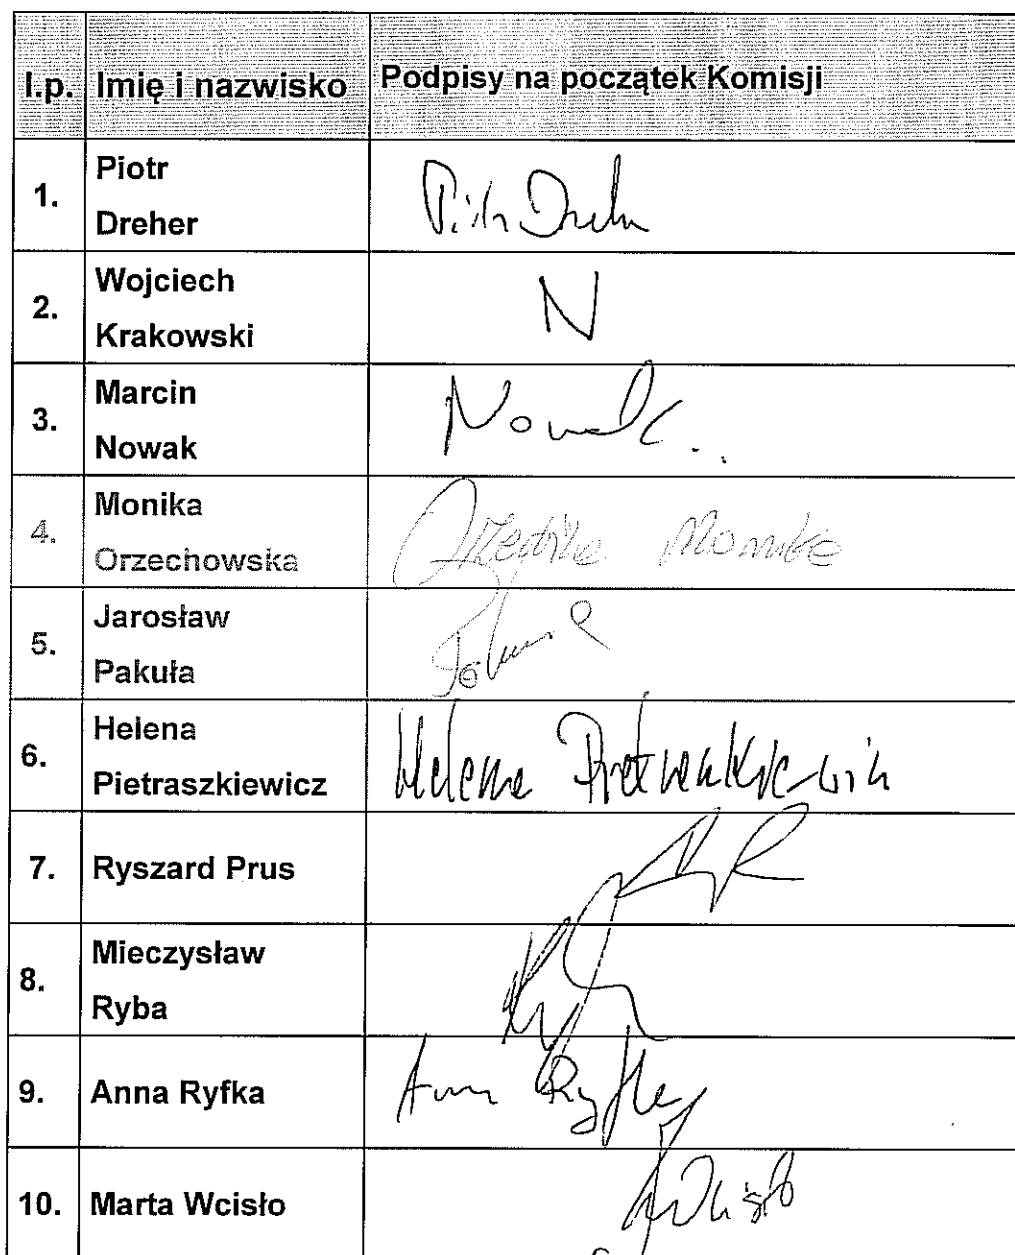 l.p. Imię i nazwisko Podpisy na początek Komisji
1. Piotr
Dreher
Piotr Dreher
2. Wojciech
Krakowski
N
3. Marcin
Nowak
Nowak...
4. Monika
Orzechowska
Monika
5. Jarosław
Pakuła
6. Helena
Pietraszkiewicz
Helena Pietraszkiewicz
7. Ryszard Prus
8. Mieczysław
Ryba
9. Anna Ryfka
Anna Ryfka
10. Marta Wcisło
Wcisło